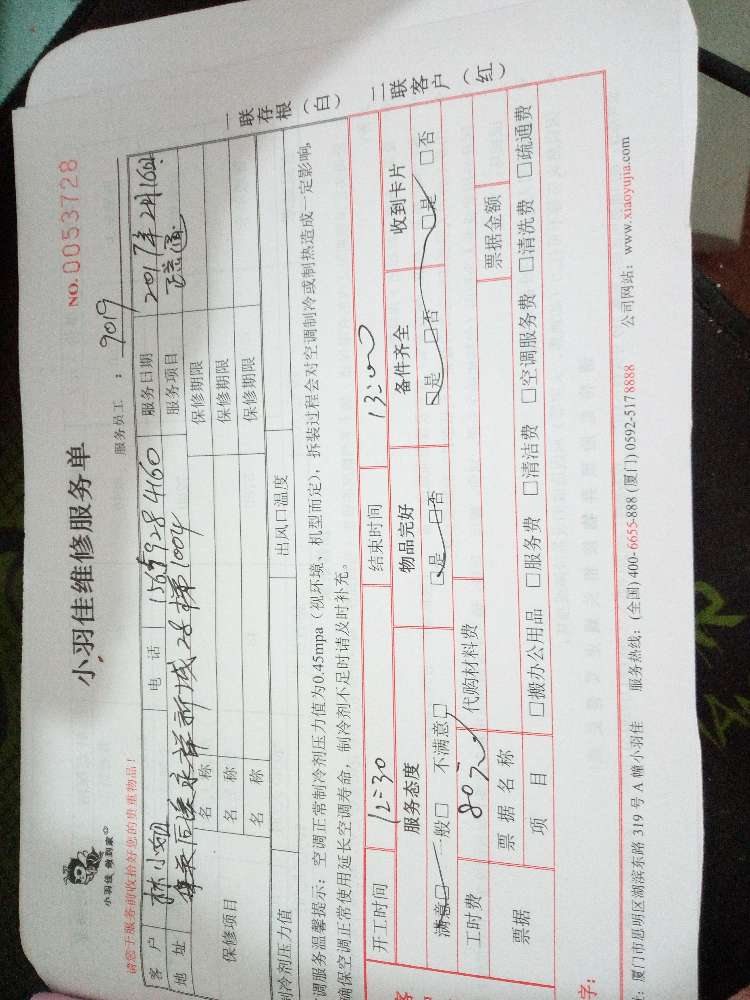 小羽佳 做到家
小羽佳维修服务单
NO.0053728
请您于服务前收拾好您的贵重物品!
服务员工 : 9019
客 户 林小姐 电 话 1565928 4160 服务日期 2017年2月16日
地 址 祥新城28梯1004 服务项目 疏通
保修项目 名 称 保修期限
名 称 保修期限
名 称 保修期限
制冷剂压力值 出风口温度
调服务温馨提示: 空调正常制冷剂压力值为0.45mpa (视环境、机型而定), 拆装过程会对空调制冷或制热造成一定影响,
确保空调正常使用延长空调寿命, 制冷剂不足时请及时补充。
开工时间 12:30 结束时间 13:00
服务态度 物品完好 备件齐全 收到卡片
满意□ 一般□ 不满意□ □是 □否 □是 □否 □是 □否
工时费 80元 代购材料费
票据 票 据 名 称 票据金额
项 目 □搬办公用品 □服务费 □清洁费 □空调服务费 □清洗费 □疏通费
字:
厦门市思明区湖滨东路 319 号 A 幢小羽佳 服务热线: (全国) 400-6655-888 (厦门) 0592-5178888 公司网站: www.xiaoyujia.com
一联存根 (白)
二联客户 (红)